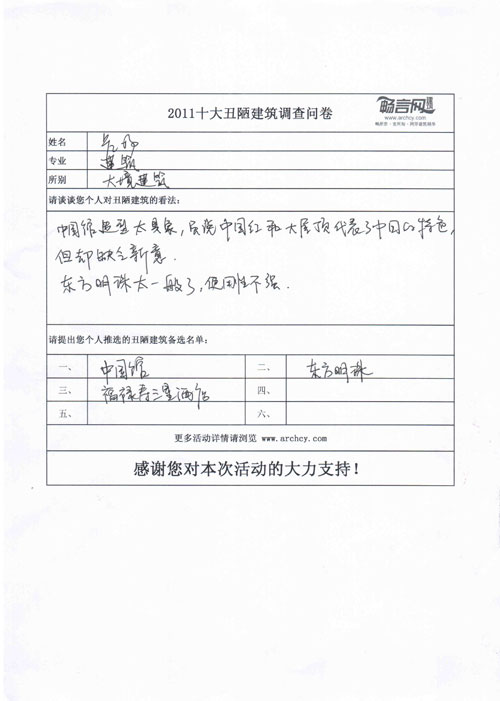 2011十大丑陋建筑调查问卷
畅言网
www.archcy.com
姓名
专业 建筑
所别 大境建筑
请谈谈您个人对丑陋建筑的看法:
中国馆造型太具象,虽说中国红和大屋顶代表了中国的特色,
但却缺乏新意.
东方明珠太一般了,使用性不强.
请提出您个人推选的丑陋建筑备选名单:
一、 中国馆 二、 东方明珠
三、 福禄寿三星酒店 四、
五、 六、
更多活动详情请浏览 www.archcy.com
感谢您对本次活动的大力支持!